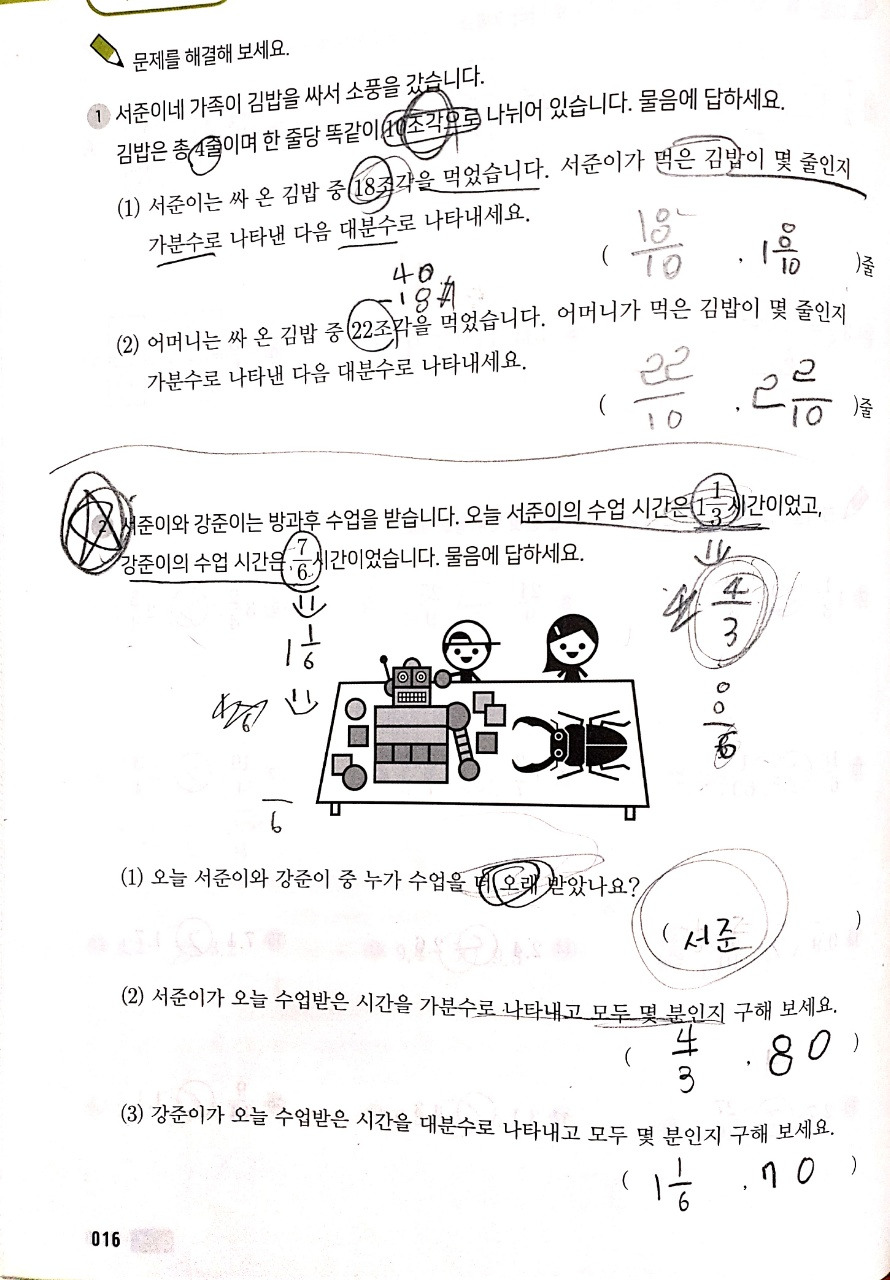 문제를 해결해 보세요.
1 서준이네 가족이 김밥을 싸서 소풍을 갔습니다.
김밥은 총 4줄이며 한 줄당 똑같이 10조각으로 나뉘어 있습니다. 물음에 답하세요.
(1) 서준이는 싸 온 김밥 중 18조각을 먹었습니다. 서준이가 먹은 김밥이 몇 줄인지
가분수로 나타낸 다음 대분수로 나타내세요.
( 18/10 , 1 8/10 )줄
40
-18
(2) 어머니는 싸 온 김밥 중 22조각을 먹었습니다. 어머니가 먹은 김밥이 몇 줄인지
가분수로 나타낸 다음 대분수로 나타내세요.
( 22/10 , 2 2/10 )줄
2 서준이와 강준이는 방과후 수업을 받습니다. 오늘 서준이의 수업 시간은 1 1/3 시간이었고,
강준이의 수업 시간은 7/6 시간이었습니다. 물음에 답하세요.
4/3
1 1/6
8/6
6
(1) 오늘 서준이와 강준이 중 누가 수업을 더 오래 받았나요?
( 서준 )
(2) 서준이가 오늘 수업받은 시간을 가분수로 나타내고 모두 몇 분인지 구해 보세요.
( 4/3 , 80 )
(3) 강준이가 오늘 수업받은 시간을 대분수로 나타내고 모두 몇 분인지 구해 보세요.
( 1 1/6 , 70 )
016